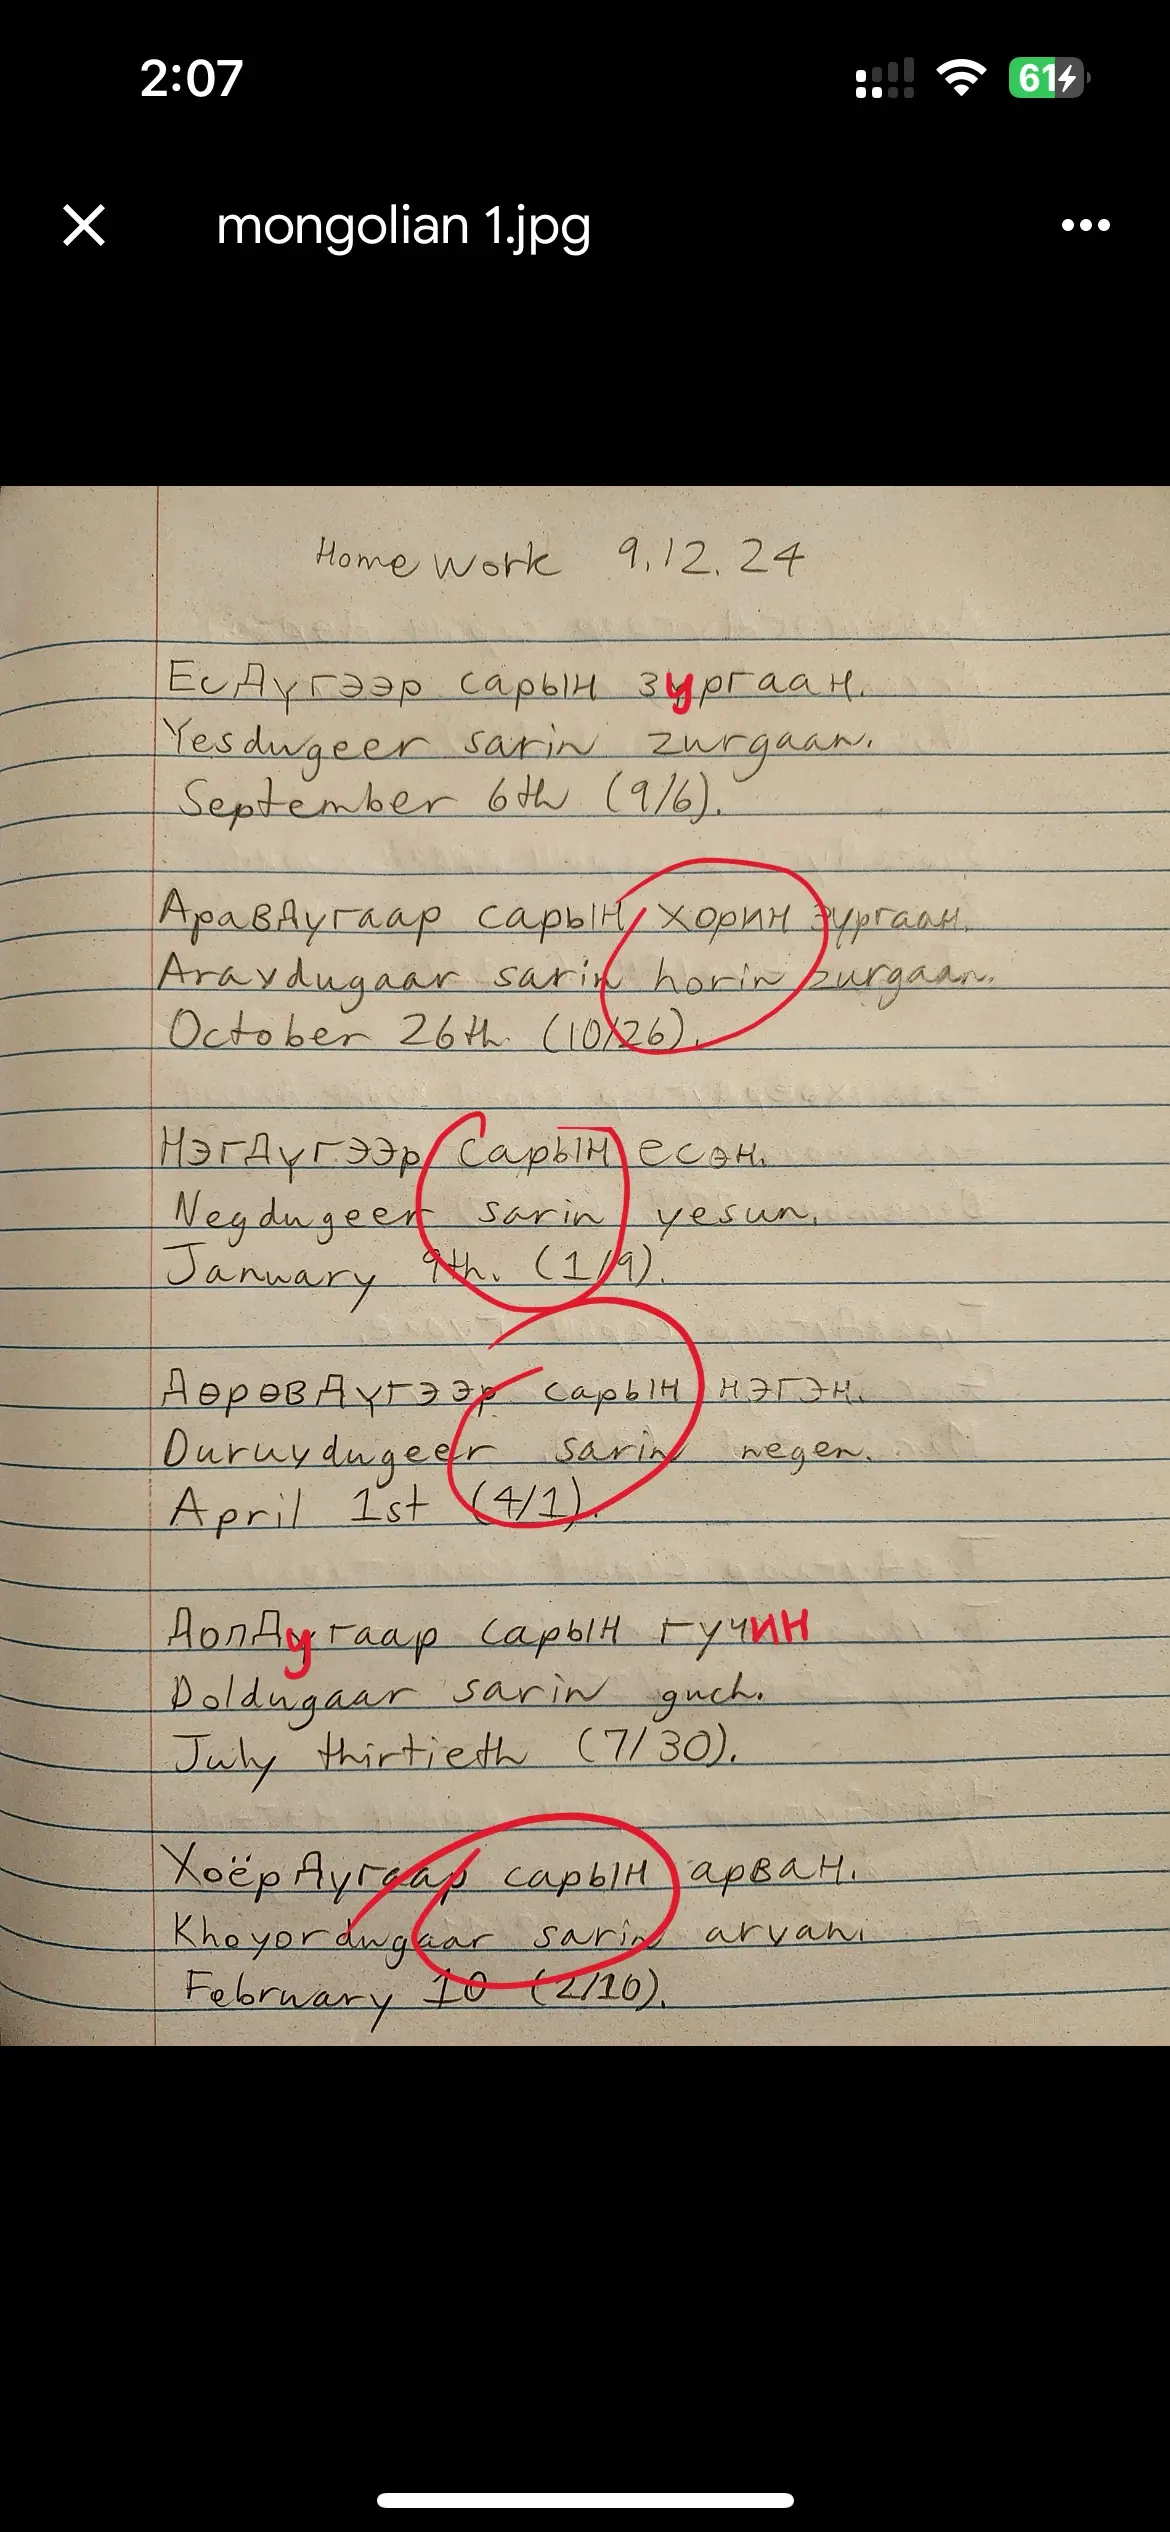 2:07
61
mongolian 1.jpg
Home Work 9.12.24
ЕсДүгээр сарын зургаан.
Yesdugeer sarin zurgaan.
September 6th (9/6).
АравДугаар сарын хорин зургаан.
Aravdugaar sarin horin zurgaan.
October 26th. (10/26).
НэгДүгээр сарын есөн.
Negdugeer sarin yesun.
January 9th. (1/9).
ДөрөвДүгээр сарын нэгэн.
Duruvdugeer sarin negen.
April 1st (4/1).
ДолДугаар сарын гучин
Doldugaar sarin guch.
July thirtieth (7/30).
ХоёрДугаар сарын арван.
Khoyordugaar sarin arvan.
February 10 (2/10).